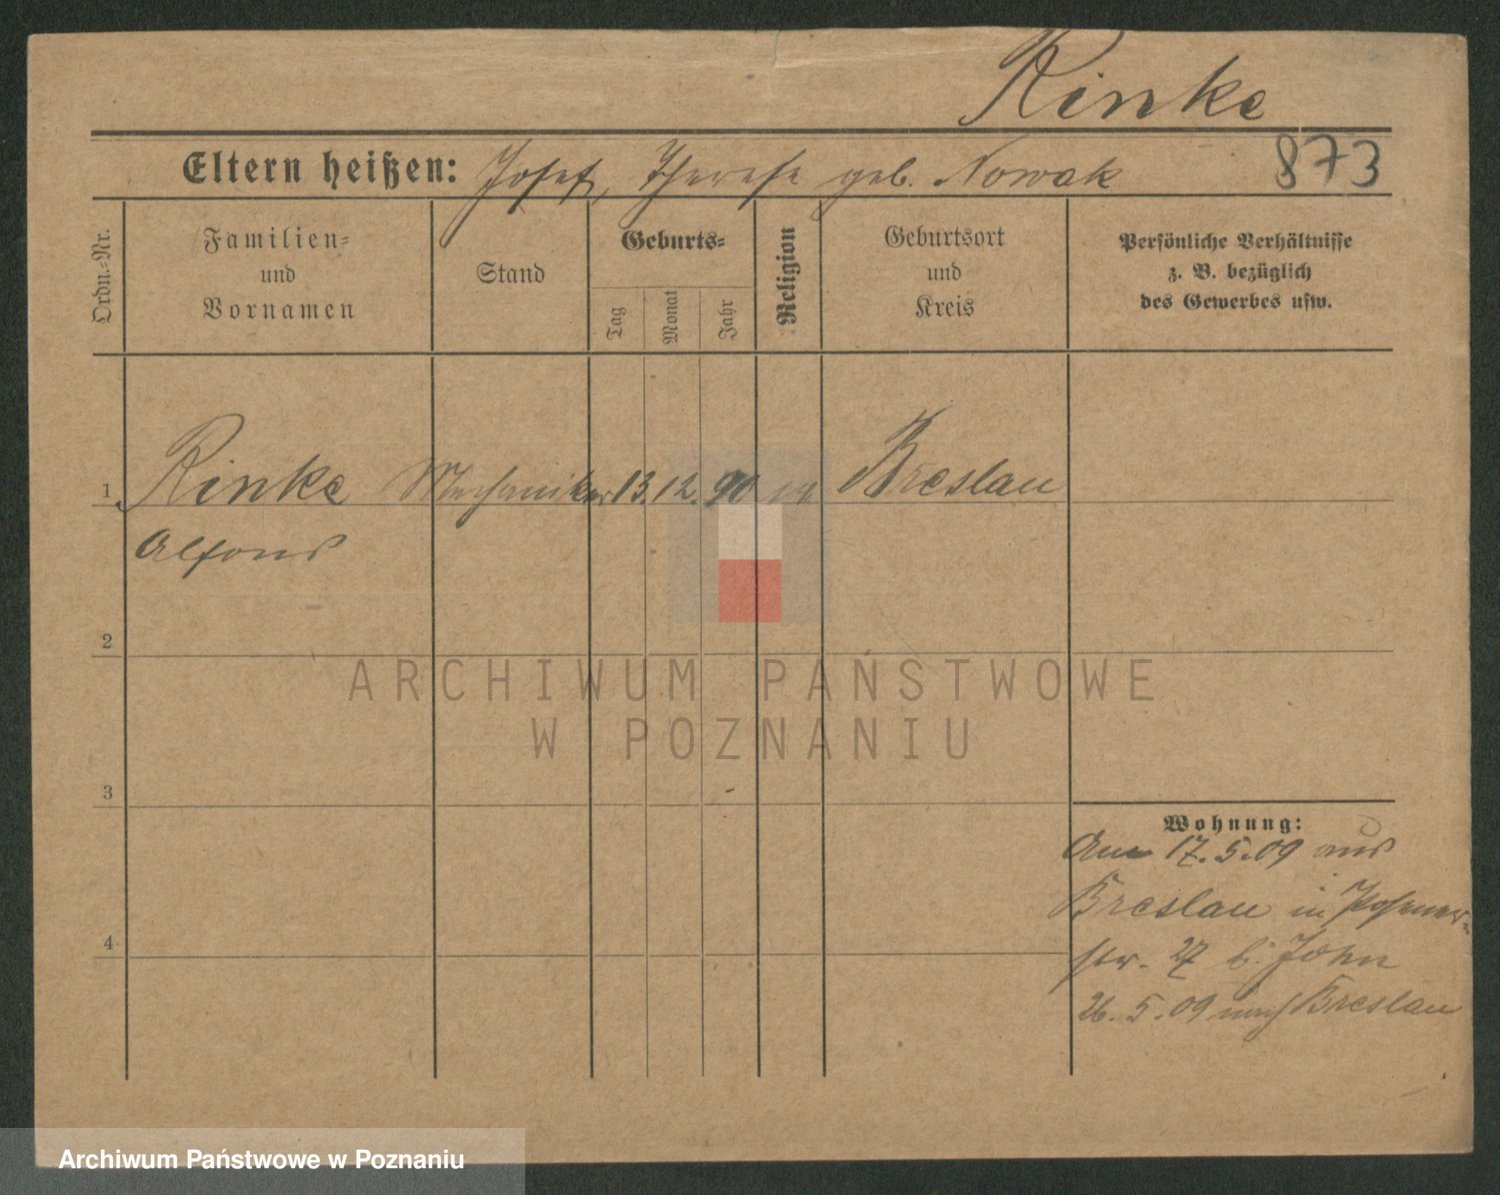 Rinke
Eltern heißen: Josef, Therese geb. Nowak 873
Ordn.-Nr.
Familien-
und
Vornamen
Stand
Geburts-
Tag
Monat
Jahr
Religion
Geburtsort
und
Kreis
Persönliche Verhältnisse
z. B. bezüglich
des Gewerbes usw.
1 Rinke Mechaniker 13. 12. 90 Breslau
Alfons
2
3
4
Wohnung:
Am 17. 5. 09 aus
Breslau in Posener-
str. 27 b. John
26. 5. 09 nach Breslau
ARCHIWUM PAŃSTWOWE
W POZNANIU
Archiwum Państwowe w Poznaniu